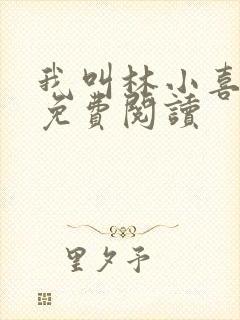 我叫林小喜
免費閱讀
里夕予